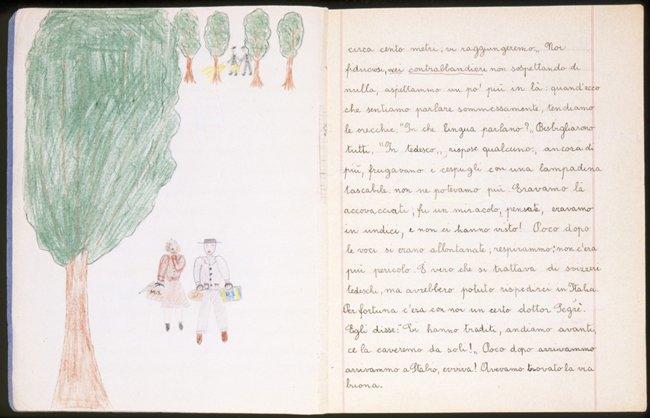 circa cento metri; vi raggiungeremo„ Noi
fiduciosi, nei contrabbandieri non sospettando di
nulla, aspettammo un po' più in là: quand'ecco
che sentiamo parlare sommessamente, tendiamo
le orecchie. "In che lingua parlano?„ Bisbigliarono
tutti, "In tedesco„, rispose qualcuno; ancora di
più, frugavano i cespugli con una lampadina
tascabile: non ne potevamo più. Eravamo là
accovacciati; fu un miracolo, pensate, eravamo
in undici, e non ci hanno visto! Poco dopo
le voci si erano allontanate; respirammo: non c'era
più pericolo. È vero che si trattava di svizzeri
tedeschi, ma avrebbero potuto rispedirci in Italia.
Per fortuna c'era con noi un certo dottor Segrè.
Egli disse: "Ci hanno traditi, andiamo avanti,
ce la caveremo da soli!„ Poco dopo arrivammo
arrivammo a Stabio, evviva! Avevamo trovato la via
buona.